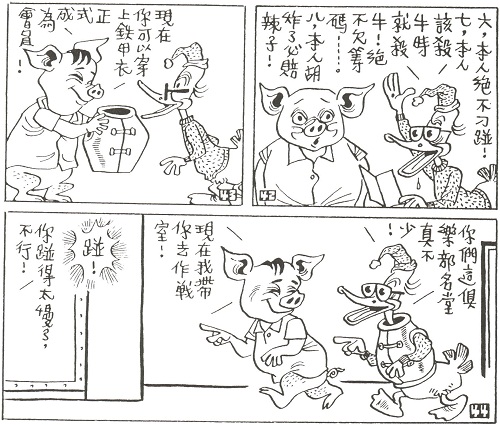 六，本人絕不刁踫！
七，本人
該殺牛時
就殺
牛！絕
不欠籌
碼……。
八，本人胡
炸了必賠
辣子！
42
現在
你可以穿
上鉄甲衣
正式成為
會員！
43
你們這俱
樂部名堂
真不
少！
現在我帶
你去作戰
室！
踫！
你踫得太慢了，
不行！
44